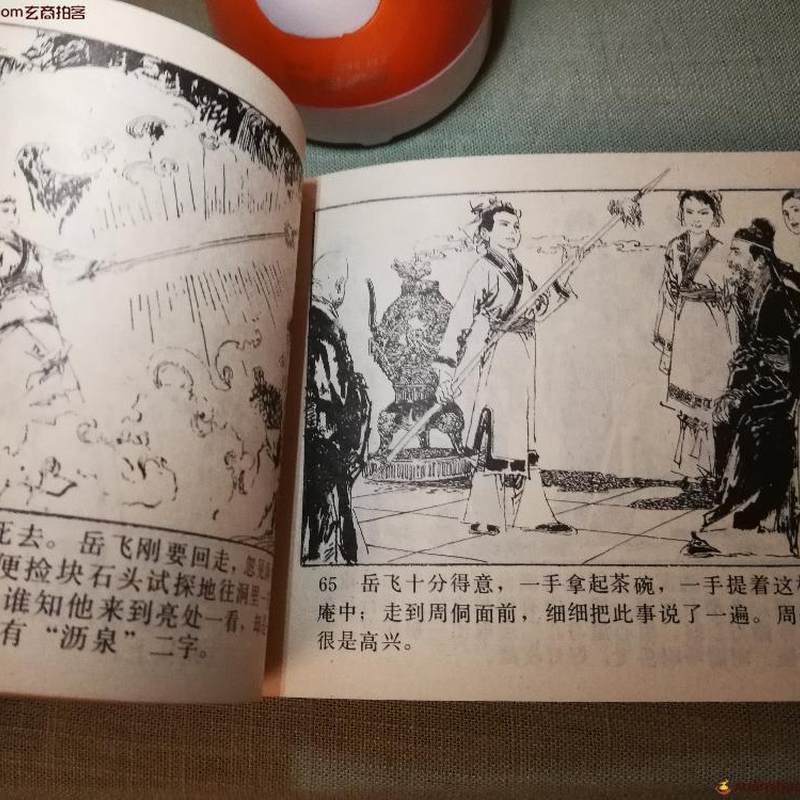 om玄商拍客
死去。岳飞刚要回走，忽见
便捡块石头试探地往洞里一
谁知他来到亮处一看，却是
有“沥泉”二字。
65 岳飞十分得意，一手拿起茶碗，一手提着这
庵中；走到周侗面前，细细把此事说了一遍。周
很是高兴。